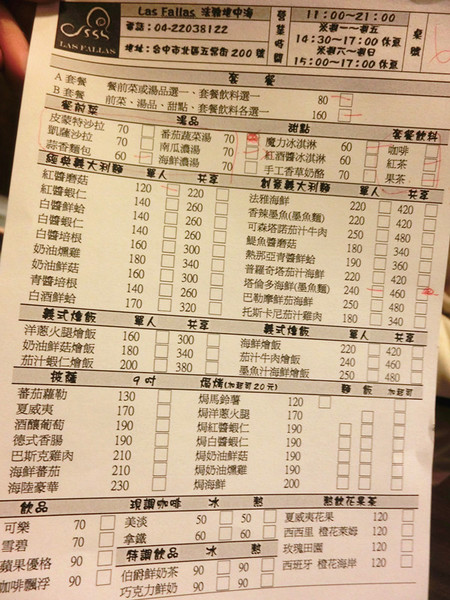 LAS FALLAS
Las Fallas 法雅地中海
電話:04-22038122
地址:台中市北區五常街200號
營業時間
11:00~21:00
14:30~17:00 休息
15:00~17:00 休息
套餐
A 套餐 餐前菜或湯品選一、套餐飲料選一 80
B 套餐 前菜、湯品、甜點、套餐飲料各選一 160
套前菜 湯品 甜點 套餐飲料
皮蒙特沙拉 70 番茄蔬菜湯 70 魔力冰淇淋 咖啡
凱薩沙拉 70 南瓜濃湯 70 紅酒醬冰淇淋 紅茶
蒜香麵包 60 海鮮濃湯 70 手工香草奶酪 果茶
經典義大利麵 單人 共享
紅醬蘑菇 120 220
紅醬蝦仁 140 260
白醬鮮蛤 140 260
白醬蝦仁 140 260
白醬培根 140 260
奶油燻雞 160 300
奶油鮮菇 140 260
青醬培根 160 300
白酒鮮蛤 170 320
創意義大利麵 單人 共享
法雅海鮮 220 420
香辣墨魚(墨魚麵) 220 420
可森塔茄汁牛肉 250 480
鯷魚醬蘑菇 180 340
熱那亞青醬鮮蛤 190 360
普羅奇塔茄汁海鮮 220 420
塔倫多海鮮(墨魚麵) 240 460
巴勒摩鮮茄海鮮 250 480
托斯卡尼茄汁雞肉 180 340
義式燴飯 單人 共享
洋蔥火腿燴飯 160 300
奶油鮮菇燴飯 180 340
茄汁蝦仁燴飯 190 360
義式燴飯 單人 共享
海鮮燴飯 220 420
茄汁牛肉燴飯 250 480
墨魚汁海鮮燴飯 250 480
披薩 9吋
蕃茄蘿勒 130
夏威夷 170
酒釀葡萄 190
德式香腸 190
巴斯克雞肉 210
海鮮蕃茄 210
海陸豪華 230
焗烤(加起司20元) 麵 飯 加起司
焗馬鈴薯 120
焗洋蔥火腿 170
焗紅醬蝦仁 190
焗白醬蝦仁 190
焗奶油燻雞 190
焗海鮮 200
飲品
可樂 70
雪碧 70
蘋果優格 90
咖啡飄浮 90
現調咖啡 冰 熱
美淡 50 50
拿鐵 60 60
特調飲品 冰 熱
伯爵鮮奶茶 90 90
巧克力鮮奶 90 90
熱飲花果茶
夏威夷花果 120
西西里 橙花萊姆 120
玫瑰田園 120
西班牙 橙花海岸 120